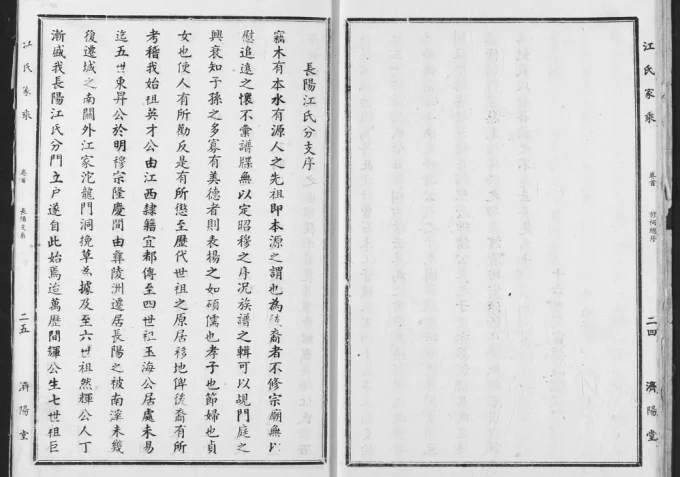 江氏家乘
卷首
二四
濟陽堂
長陽江氏分支序
竊木有本水有源人之先祖即本源之謂也為後裔者不修宗廟無以
慰追遠之懷不彙譜牒無以定昭穆之序况族譜之輯可以覘門庭之
興衰知子孫之多寡有美德者則表揚之如碩儒也孝子也節婦也貞
女也使人有所勸反是有所懲至歷代世祖之原居移地俾後裔有所
考稽我始祖英才公由江西隸籍宜都傳至四世祖玉海公居處未易
迨五世東昇公於明穆宗隆慶間由彝陵洲遷居長陽之被南溪未幾
後遷城之南關外江家沱龍門洞挽草為據及至六世祖然輝公人丁
漸盛我長陽江氏分門立户遂自此始焉迨萬歷間鐸公生七世祖巨
江氏家乘
卷首
長陽支系
二五
濟陽堂